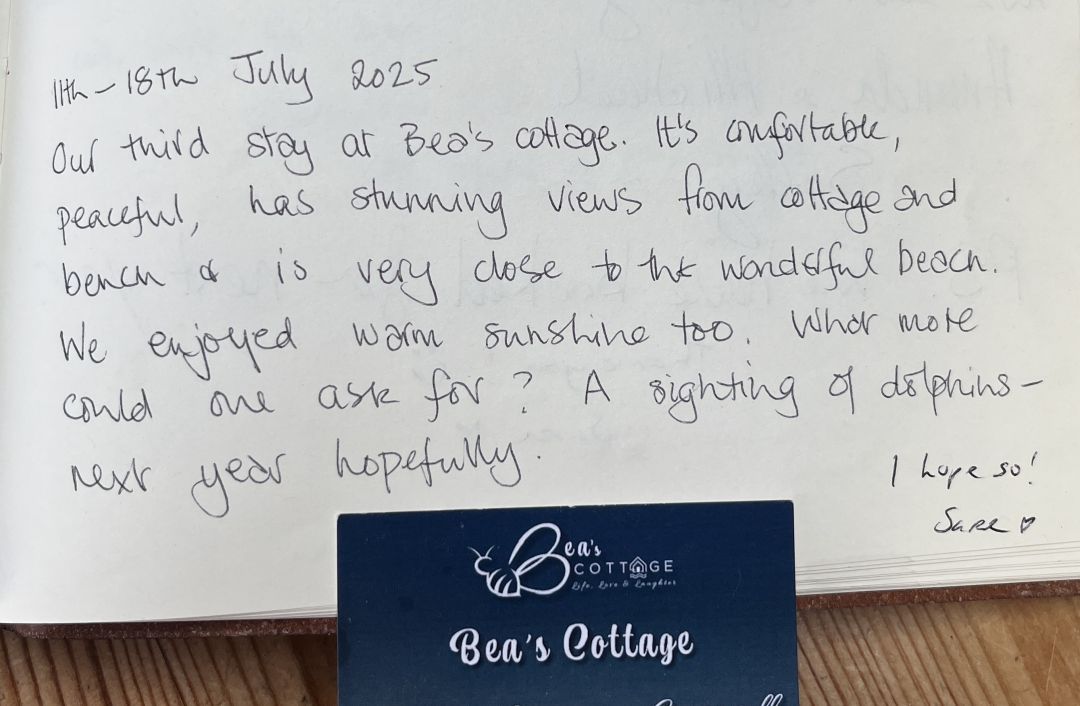 11th - 18th July 2025
Our third stay at Bea's cottage. It's comfortable,
peaceful, has stunning views from cottage and
bench & is very close to the wonderful beach.
We enjoyed warm sunshine too. What more
could one ask for? A sighting of dolphins -
next year hopefully.
I hope so!
Bea's
COTTAGE
Life, Love & Laughter
Bea's Cottage